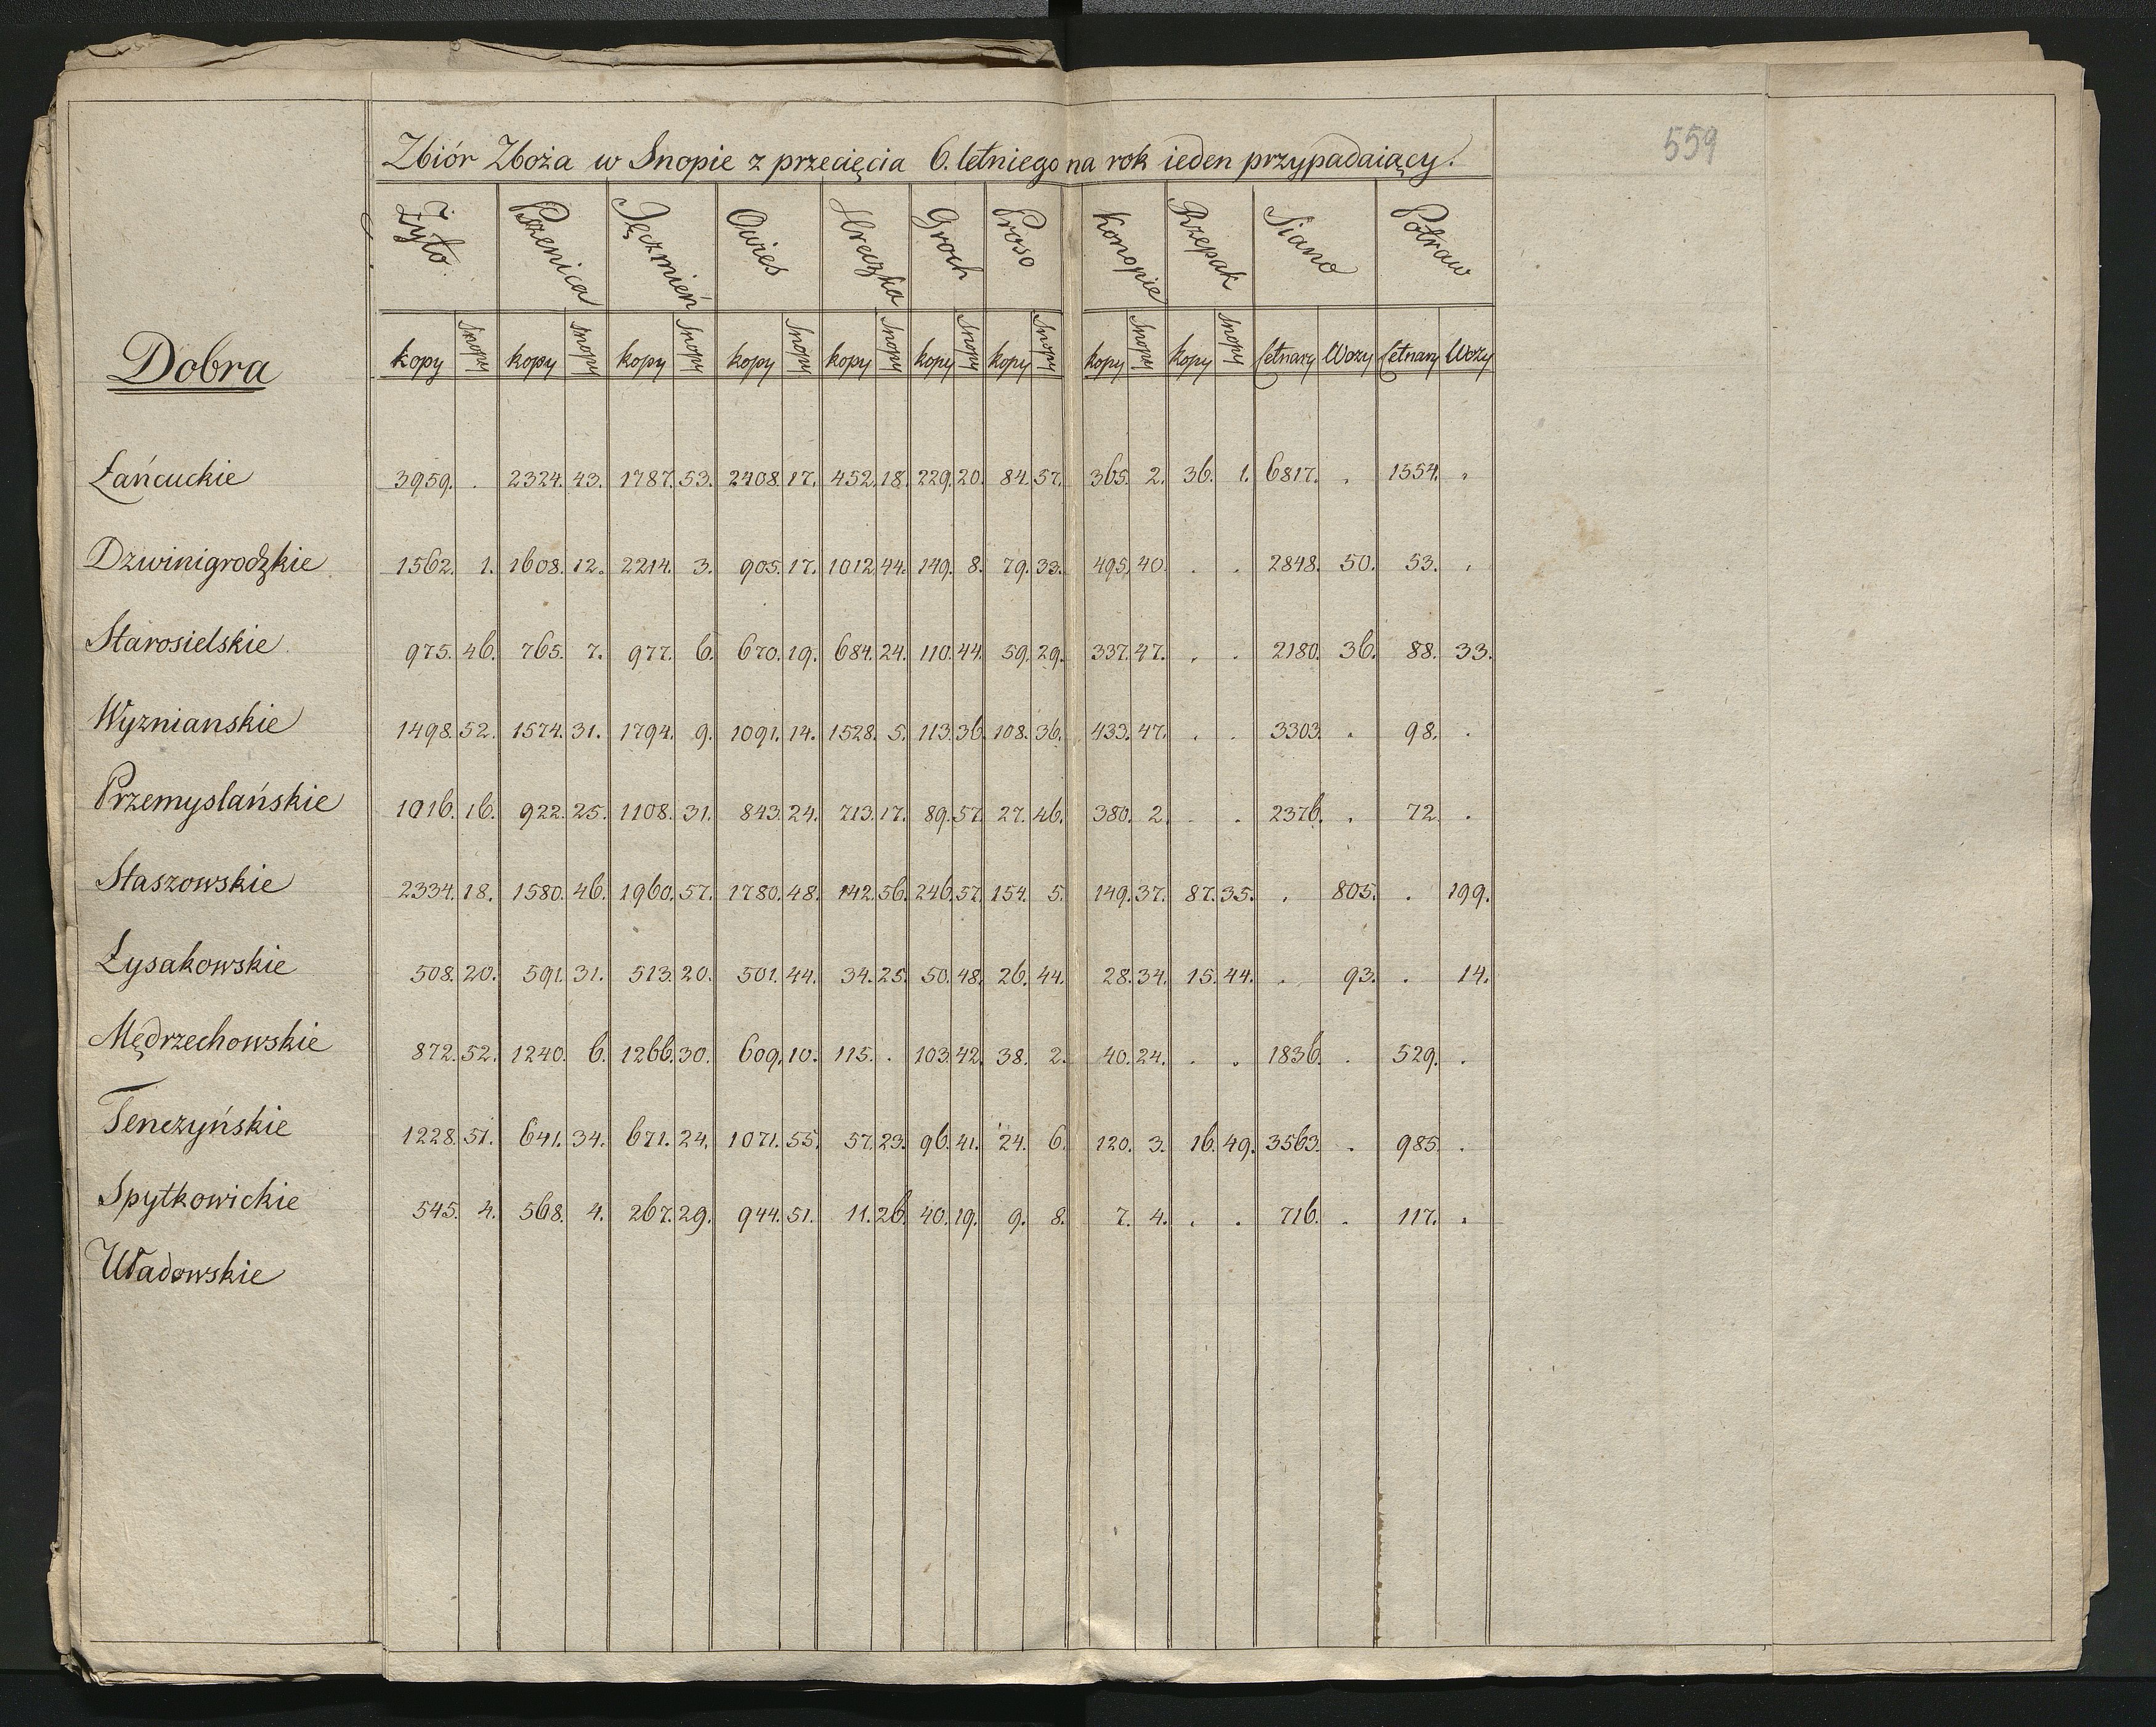 559
Zbiór Zboża w Snopie z przecięcia 6. letniego na rok ieden przypadaiący.
Dobra
Żyto Pszenica Jęczmień Owies Hreczka Groch Proso Konopie Rzepak Siano Potraw
kopy snopy kopy snopy kopy snopy kopy snopy kopy snopy kopy snopy kopy snopy kopy snopy kopy snopy Cetnary Wozy Cetnary Wozy
Łańcuckie 3959. . 2324. 43. 1787. 53. 2408. 17. 452. 18. 229. 20. 84. 57. 365. 2. 36. 1. 6817. . 1554. .
Dzwinigrodzkie 1562. 1. 1608. 12. 2214. 3. 905. 17. 1012. 44. 149. 8. 79. 33. 495. 40. . . 2848. 50. 53. .
Starosielskie 975. 46. 765. 7. 977. 6. 670. 19. 684. 24. 110. 44. 59. 29. 337. 47. . . 2180. 36. 88. 33.
Wyznianskie 1498. 52. 1574. 31. 1794. 9. 1091. 14. 1528. 5. 113. 36. 108. 36. 433. 47. . . 3303. . 98. .
Przemyslańskie 1016. 16. 922. 25. 1108. 31. 843. 24. 713. 17. 89. 57. 27. 46. 380. 2. . . 2376. . 72. .
Staszowskie 2334. 18. 1580. 46. 1960. 57. 1780. 48. 142. 56. 246. 57. 154. 5. 149. 37. 87. 35. . 805. . 199.
Łysakowskie 508. 20. 591. 31. 513. 20. 501. 44. 34. 25. 50. 48. 26. 44. 28. 34. 15. 44. . 93. . 14.
Mędrzechowskie 872. 52. 1240. 6. 1266. 30. 609. 10. 115. . 103. 42. 38. 2. 40. 24. . . 1836. . 529. .
Tenczyńskie 1228. 51. 641. 34. 671. 24. 1071. 55. 57. 23. 96. 41. 24. 6. 120. 3. 16. 49. 3563. . 985. .
Spytkowickie 545. 4. 568. 4. 267. 29. 944. 51. 11. 26. 40. 19. 9. 8. 7. 4. . . 716. . 117. .
Uładowskie